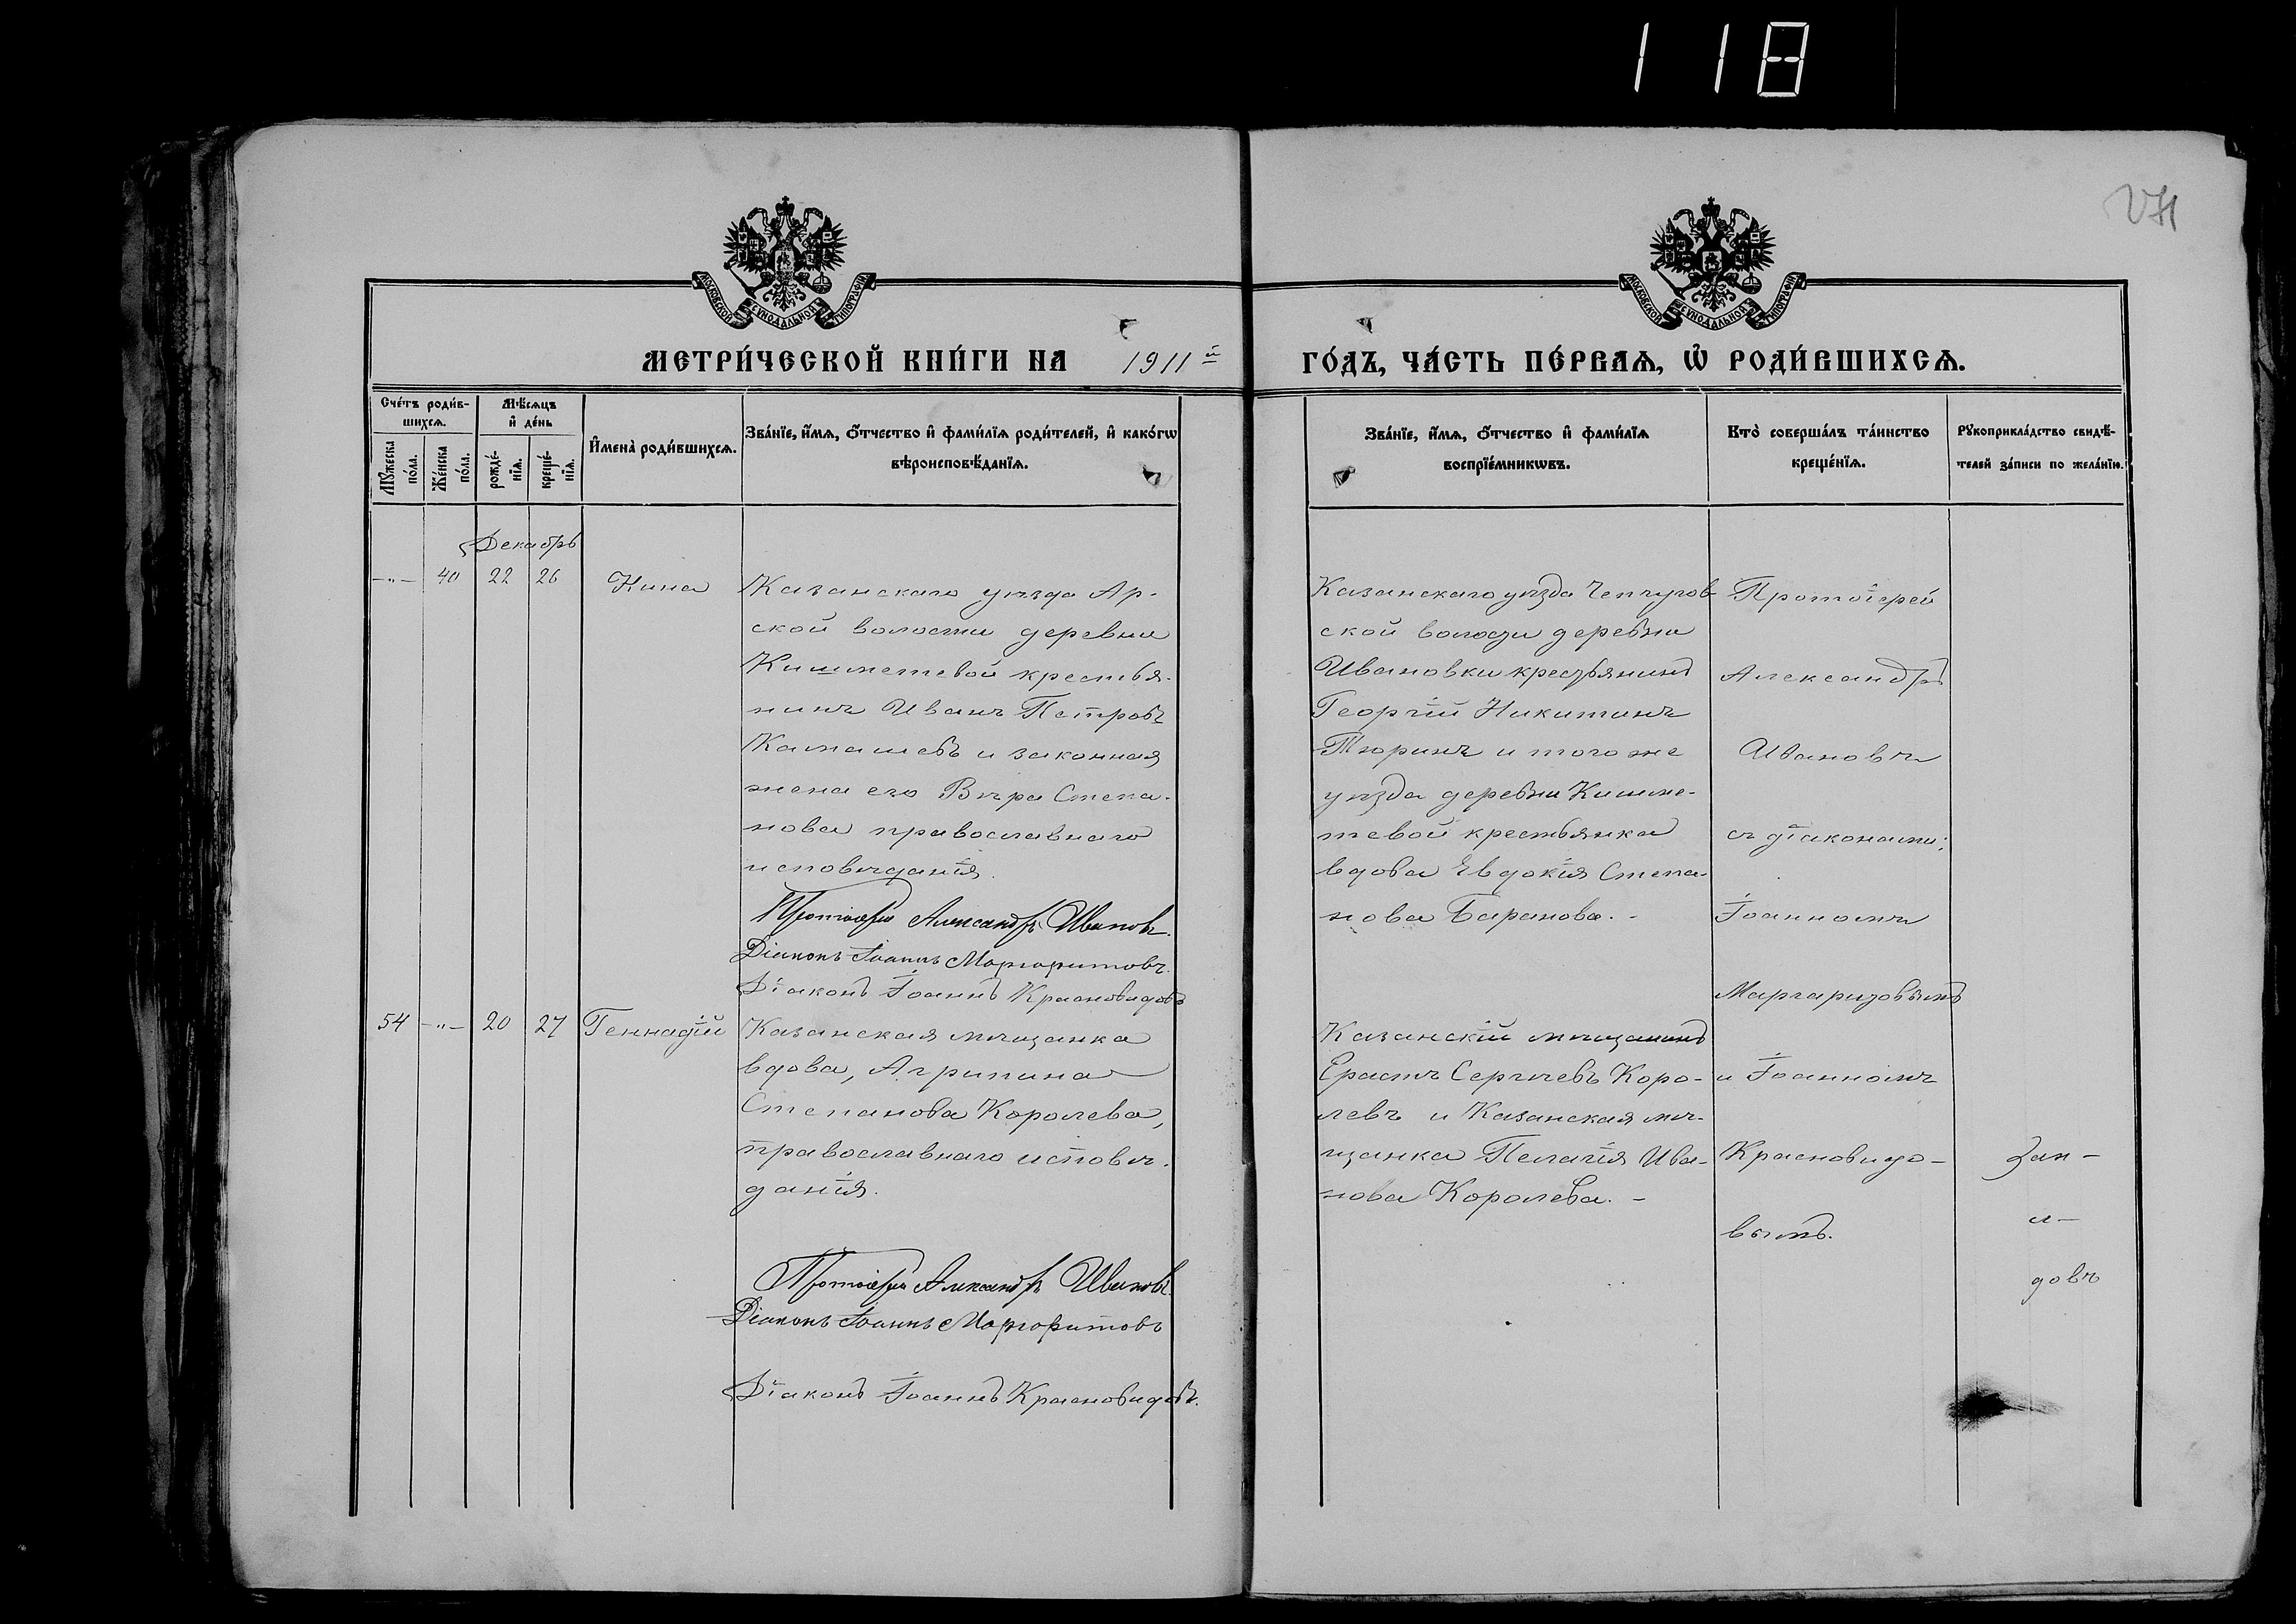 118
271
МОСКОВСКОЙ СѴНОДАЛЬНОЙ ТИПОГРАФІИ
МОСКОВСКОЙ СѴНОДАЛЬНОЙ ТИПОГРАФІИ
МЕТРИ́ЧЕСКОЙ КНИ́ГИ НА 1911й ГО́ДЪ, ЧА́СТЬ ПЕ́РВАѦ, Ѡ҆ РОДИ́ВШИХСѦ.
Сче́тъ роди́в-
шихсѧ.
Мꙋ́жеска по́ла.
Же́нска по́ла.
Мѣ́сѧцъ
и҆ де́нь
рожде́-
нїѧ.
креще́-
нїѧ.
И҆мена̀ роди́вшихсѧ.
Зва́нїе, и҆́мѧ, ѻ҆́тчество и҆ фами́лїѧ роди́телей, и҆ како́гѡ
вѣроисповѣ́данїѧ.
Зва́нїе, и҆́мѧ, ѻ҆́тчество и҆ фами́лїѧ
воспрїе́мникѡвъ.
Кто̀ соверша́лъ та́инство
креще́нїѧ.
Рꙋкоприкла́дство свидѣ́-
телей за́писи по жела́нїю.
Декабрь
-"- 40 22 26 Нина
Казанскаго уѣзда Ар-
ской волости деревни
Кишметевой крестья-
нинъ Иванъ Петровъ
Камашевъ и законная
жена его Вѣра Степа-
нова православнаго
исповѣданія.
Протоіерей Александръ Ивановъ.
Діаконъ Іоаннъ Маргаритовъ.
Діаконъ Іоаннъ Красновидовъ
Казанскаго уѣзда Чепчугов-
ской волости деревни
Ивановки крестьянинъ
Георгій Никитинъ
Тюринъ и того же
уѣзда деревни Кишме-
тевой крестьянка
вдова Евдокія Степа-
нова Баранова. -
Протоіерей
Александръ
Ивановъ
съ діаконами:
Іоанномъ
Маргаритовымъ
и Іоанномъ
Красновидо-
вымъ.
54 -"- 20 27 Геннадій
Казанская мѣщанка
вдова, Агрипина
Степанова Королева,
православнаго исповѣ-
данія.
Протоіерей Александръ Ивановъ.
Діаконъ Іоаннъ Маргаритовъ
Діаконъ Іоаннъ Красновидовъ.
Казанскій мѣщанинъ
Ерастъ Сергѣевъ Коро-
левъ и Казанская мѣ-
щанка Пелагія Ива-
нова Королева. -
довъ